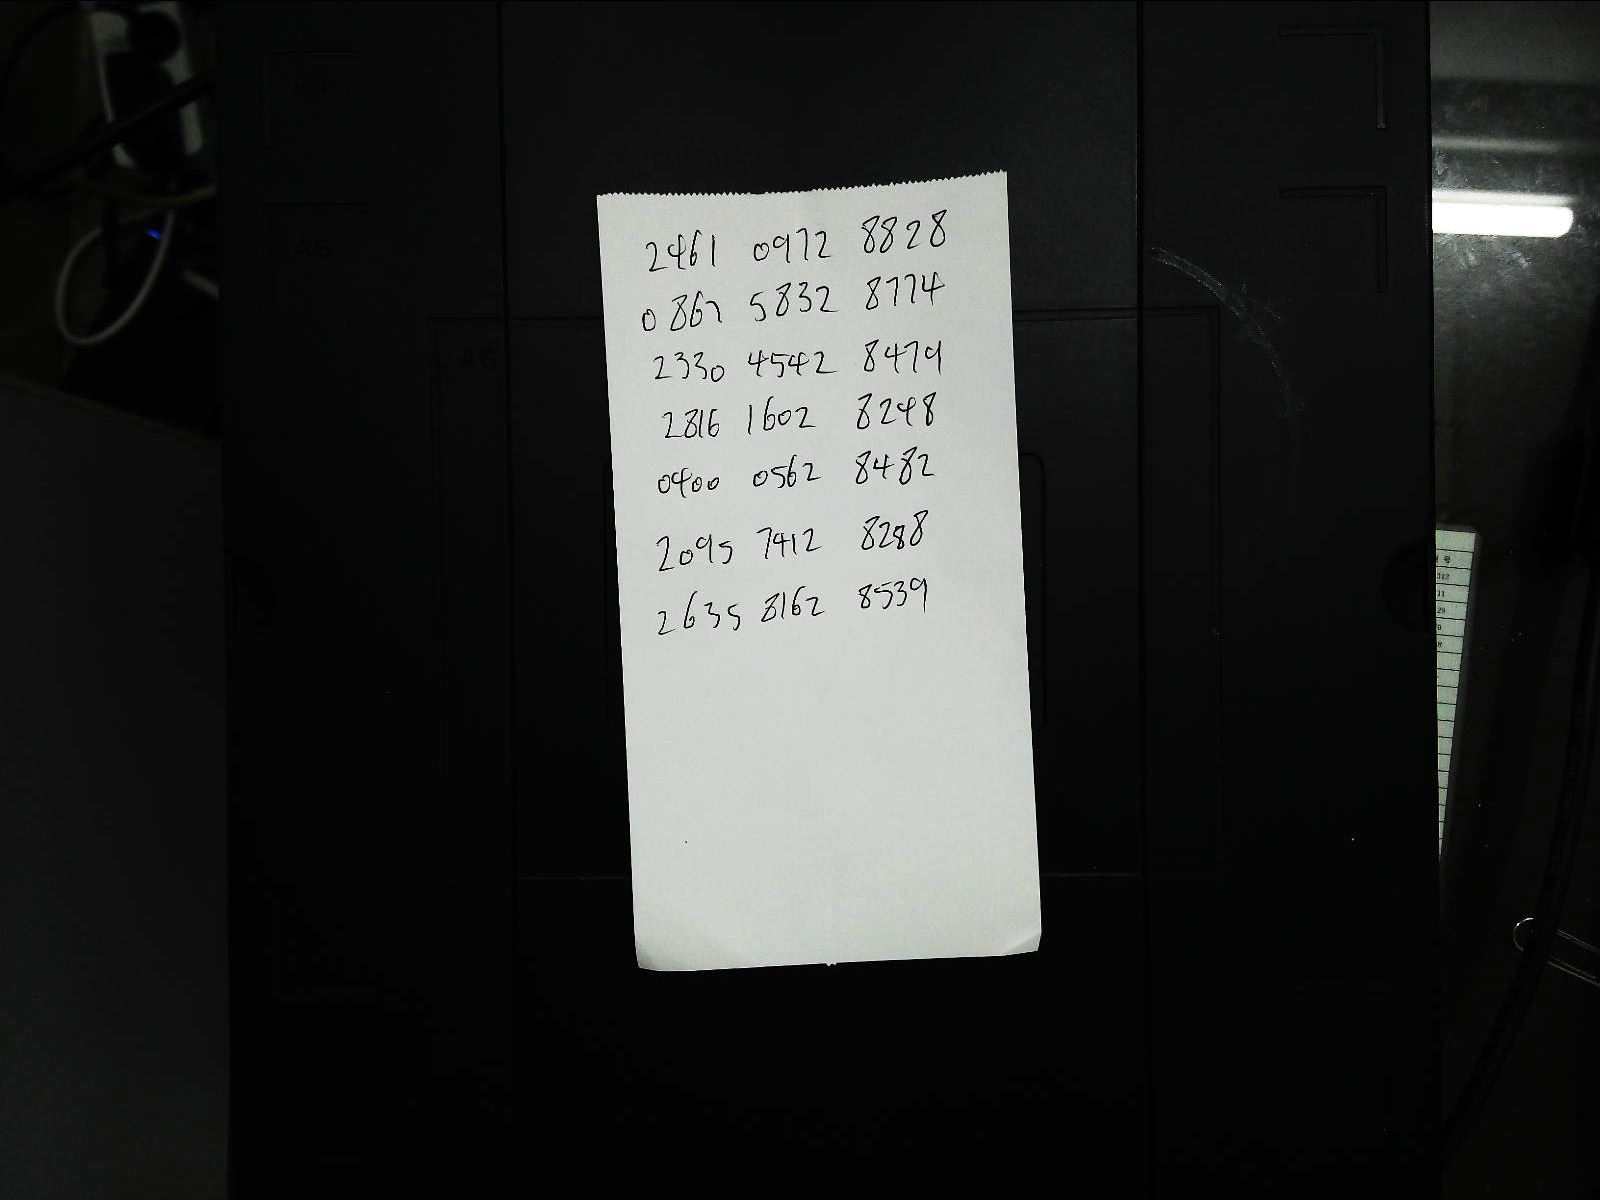 2461 0972 8828
0867 5832 8774
2330 4542 8479
2816 1602 8248
0400 0562 8482
2095 7412 8288
2635 8162 8539
A5